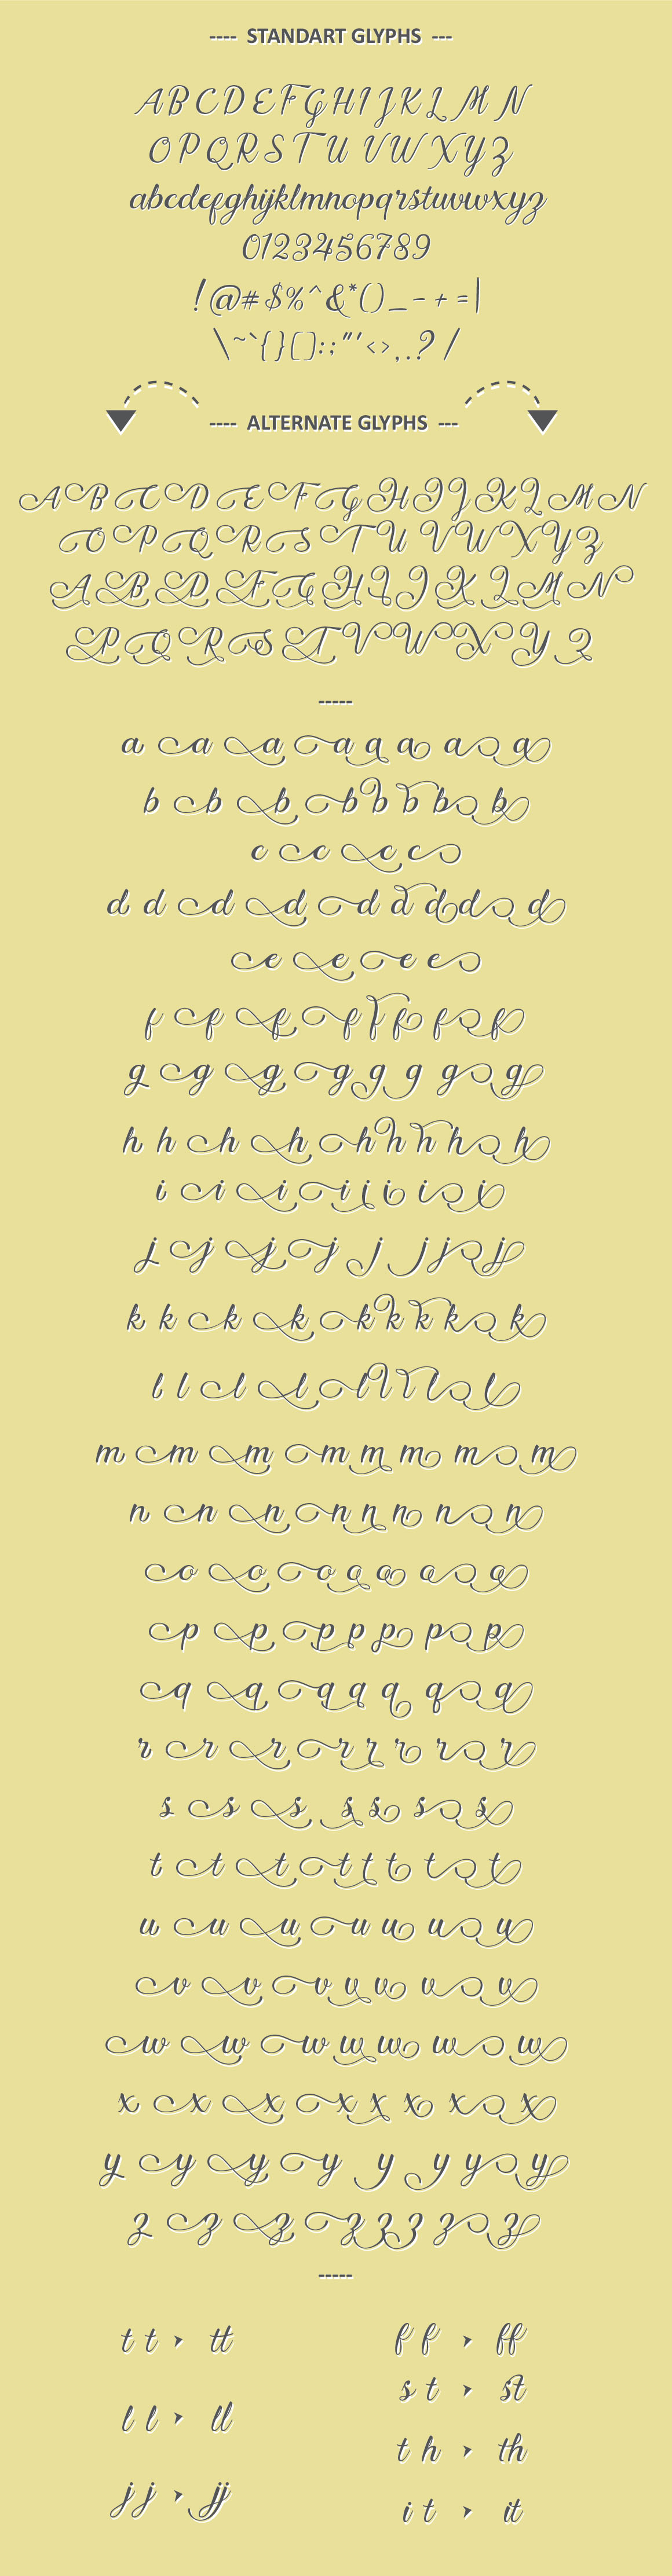 ---- STANDART GLYPHS ---
A B C D E F G H I J K L M N
O P Q R S T U V W X Y Z
abcdefghijklmnopqrstuvwxyz
0123456789
!@#$%^&*()_-+=|
\~`{}[]:;"'<>,.?/
---- ALTERNATE GLYPHS ---
A B C D E F G H I J K L M N
O P Q R S T U V W X Y Z
A B D F G H I J K L M N
P Q R S T V W X Y Z
-----
a a a a a a a a
b b b b b b b b
c c c c
d d d d d d d d d
e e e e
f f f f f f f f
g g g g g g g g
h h h h h h h h h
i i i i i i i i
j j j j j j j j
k k k k k k k k k
l l l l l l l l l
m m m m m m m m
n n n n n n n n
o o o o o o o
p p p p p p p
q q q q q q q
r r r r r r r r
s s s s s s s
t t t t t t t t
u u u u u u u
v v v v v v v
w w w w w w w
x x x x x x x x
y y y y y y y y
z z z z z z z z
-----
t t tt
f f ff
s t st
l l ll
t h th
j j jj
i t it